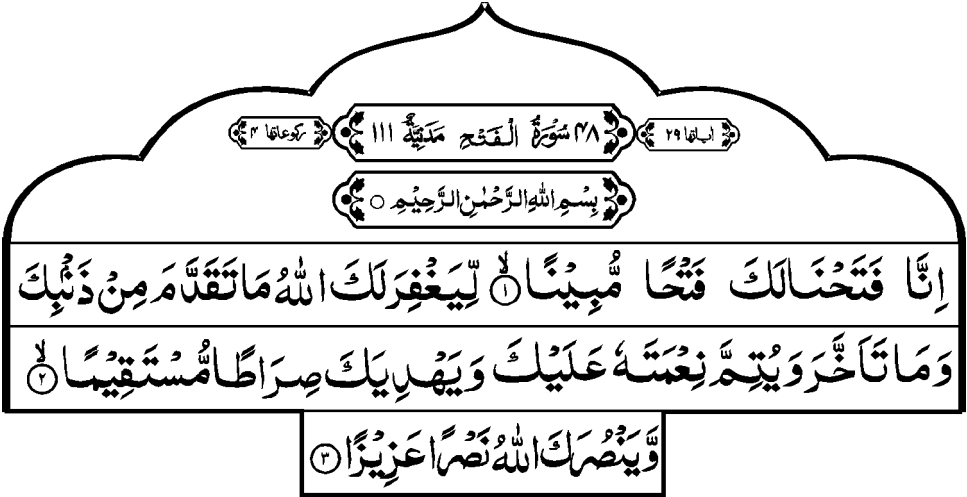 اٰیاتها ۲۹ ۴۸ سُوْرَةُ الْفَتْحِ مَدَنِیَّةٌ ۱۱۱ ركوعاتها ۴
بِسْمِ اللّٰهِ الرَّحْمٰنِ الرَّحِیْمِ ○
اِنَّا فَتَحْنَا لَكَ فَتْحًا مُّبِیْنًا ۙ﴿۱﴾ لِّیَغْفِرَ لَكَ اللّٰهُ مَا تَقَدَّمَ مِنْ ذَنْۢبِكَ
وَ مَا تَاَخَّرَ وَ یُتِمَّ نِعْمَتَهٗ عَلَیْكَ وَ یَهْدِیَكَ صِرَاطًا مُّسْتَقِیْمًا ۙ﴿۲﴾
وَّ یَنْصُرَكَ اللّٰهُ نَصْرًا عَزِیْزًا ﴿۳﴾